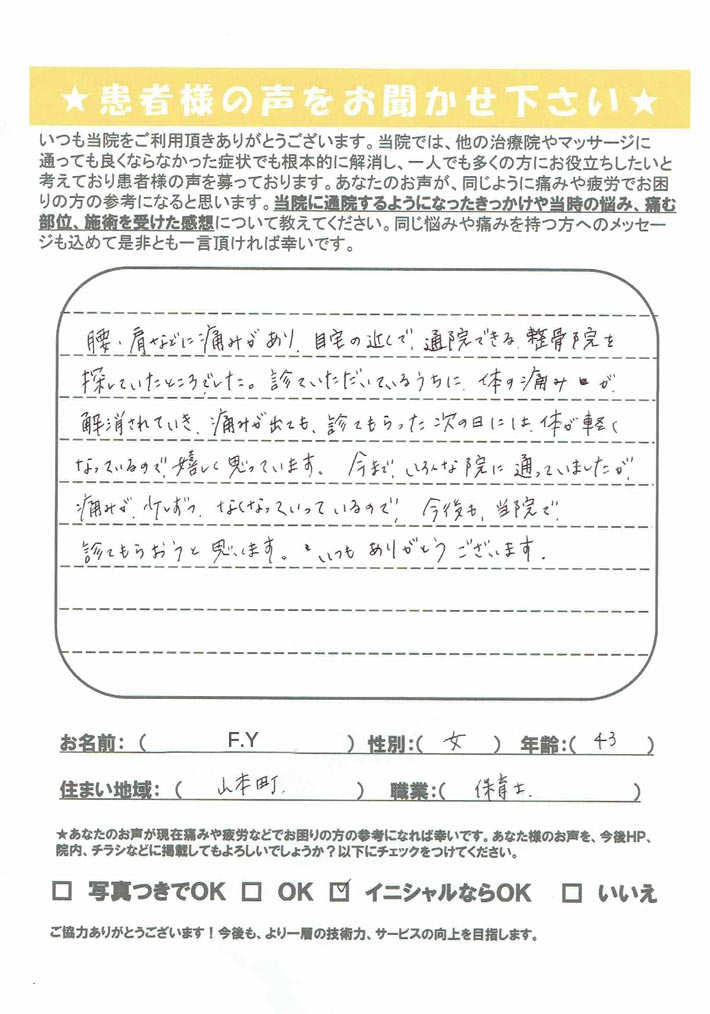 ★患者様の声をお聞かせ下さい★
いつも当院をご利用頂きありがとうございます。当院では、他の治療院やマッサージに
通っても良くならなかった症状でも根本的に解消し、一人でも多くの方にお役立ちしたいと
考えており患者様の声を募っております。あなたのお声が、同じように痛みや疲労でお困
りの方の参考になると思います。当院に通院するようになったきっかけや当時の悩み、痛む
部位、施術を受けた感想について教えてください。同じ悩みや痛みを持つ方へのメッセー
ジも込めて是非とも一言頂ければ幸いです。
腰・肩などに痛みがあり、自宅の近くで、通院できる、整骨院を
探していたところでした。診ていただいているうちに、体の痛みが、
解消されていき、痛みが出ても、診てもらった次の日には、体が軽く
なっているので、嬉しく思っています。今まで、いろんな院に通っていましたが、
痛みが、少しずつ、なくなっていっているので、今後も、当院で、
診てもらおうと思います。いつもありがとうございます。
お名前:( F.Y ) 性別:( 女 ) 年齢:( 43 )
住まい地域:( 山本町. ) 職業:( 保育士. )
★あなたのお声が現在痛みや疲労などでお困りの方の参考になれば幸いです。あなた様のお声を、今後HP、
院内、チラシなどに掲載してもよろしいでしょうか?以下にチェックをつけてください。
□ 写真つきでOK □ OK ☑ イニシャルならOK □ いいえ
ご協力ありがとうございます!今後も、より一層の技術力、サービスの向上を目指します。